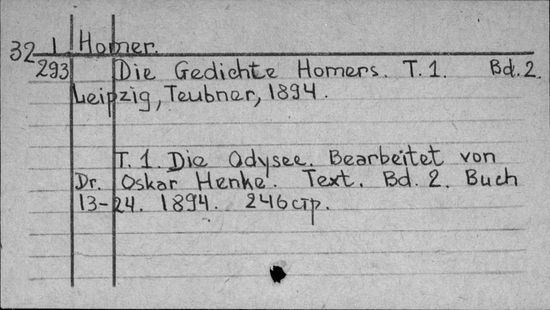 32 1 Homer.
293 Die Gedichte Homers. T. 1. Bd. 2.
Leipzig, Teubner, 1894.
T. 1. Die Odysee. Bearbeitet von
Dr. Oskar Henke. Text. Bd. 2. Buch
13-24. 1894. 246 стр.